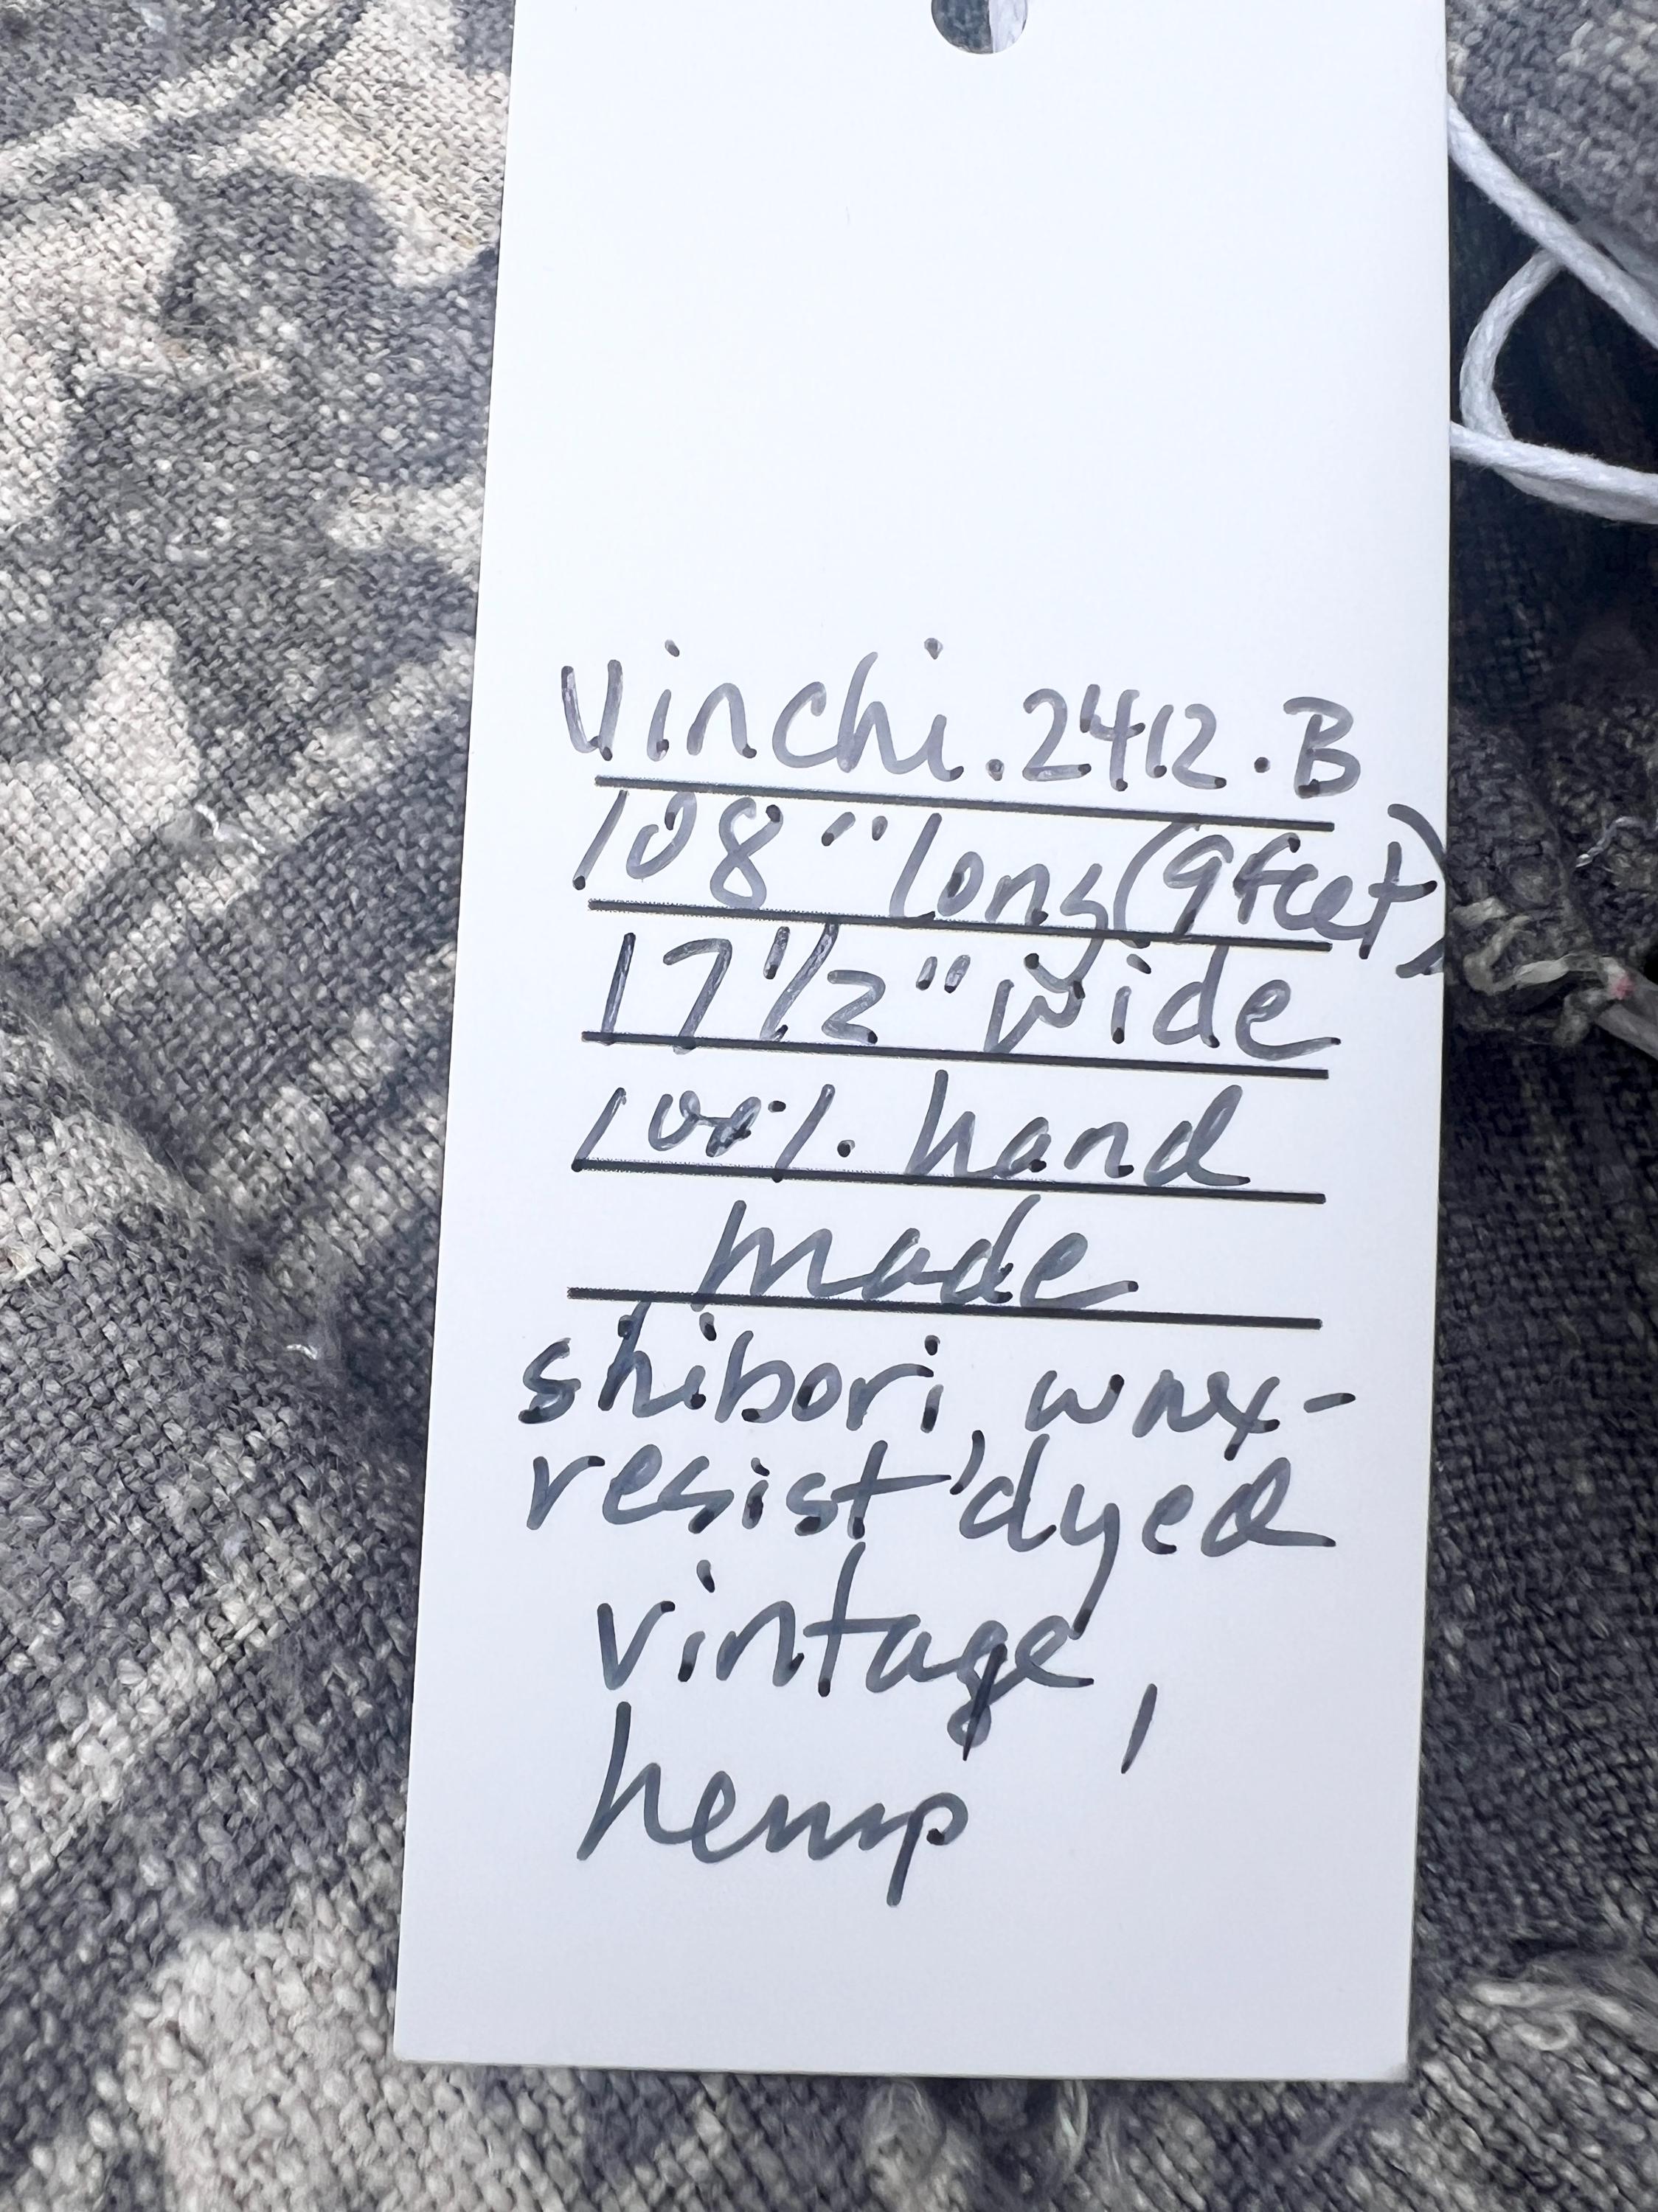 Vinchi.2412.B
108" long (9 feet)
17 1/2" wide
100%. hand
made
shibori, wax-
resist dyed
vintage,
hemp